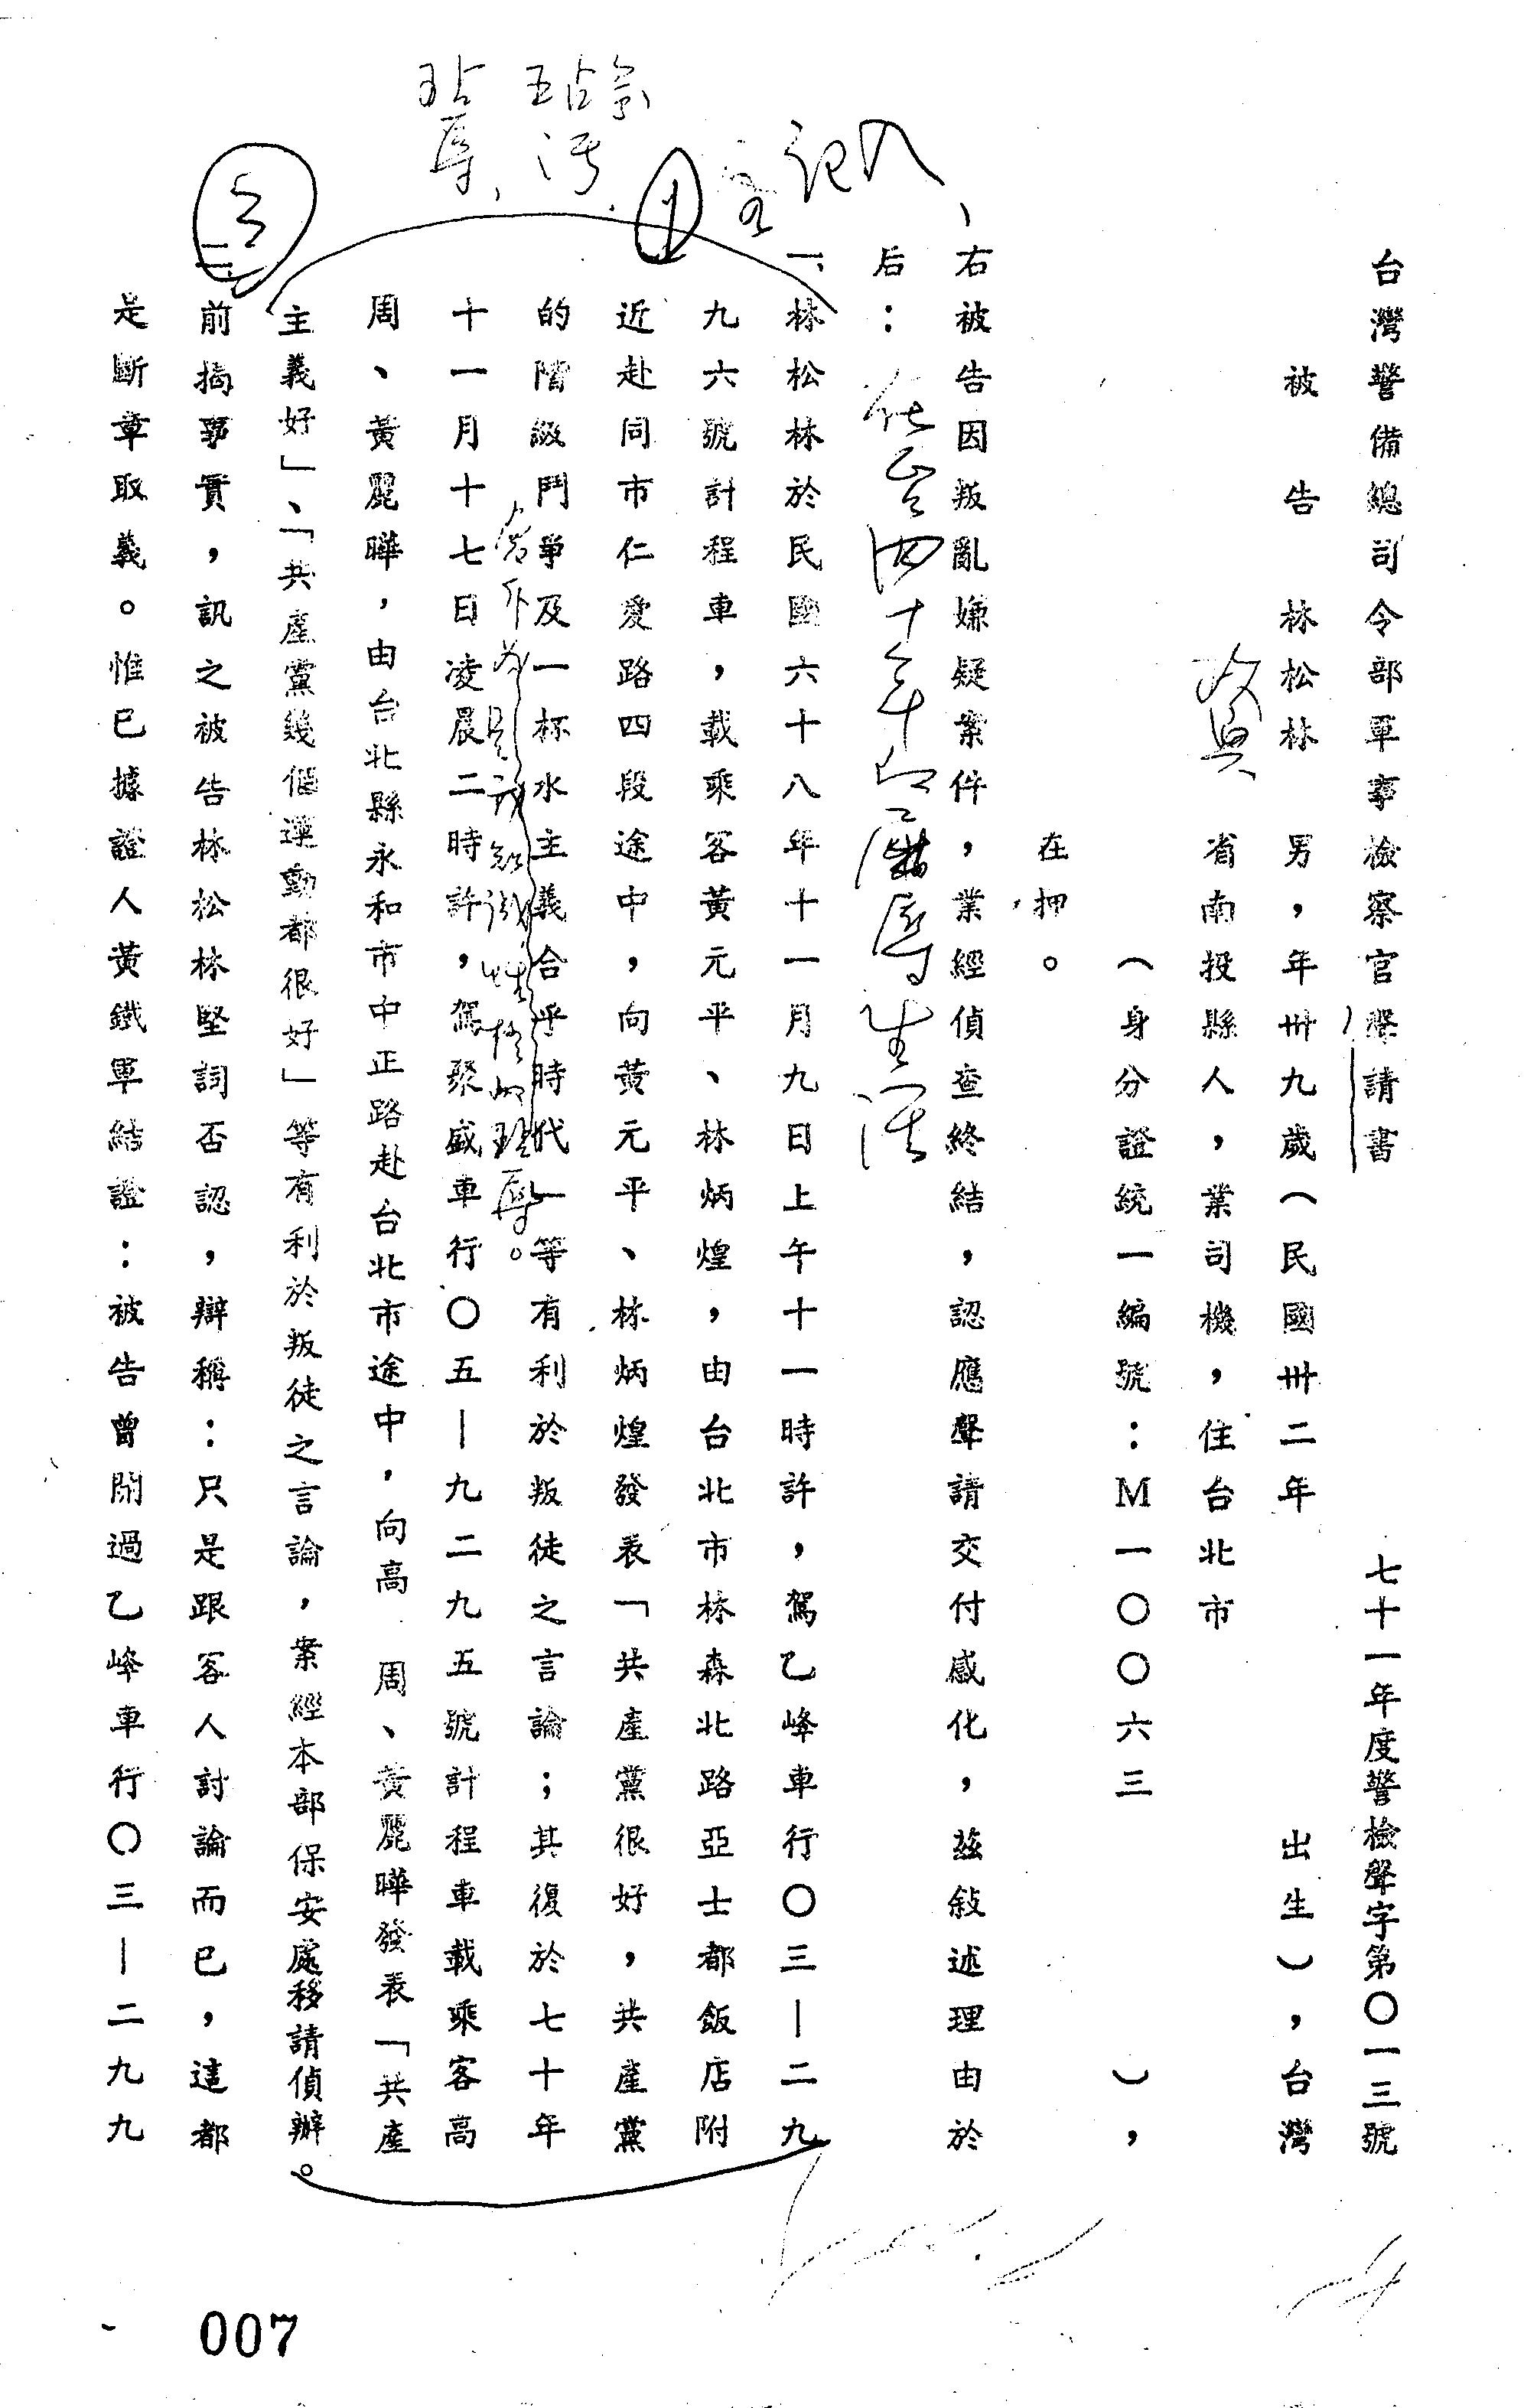 台灣警備總司令部軍事檢察官聲請書
七十一年度警檢聲字第〇一三號
被告 林松林 男,年卅九歲(民國卅二年 出生),台灣
省南投縣人,業司機,住台北市
(身分證統一編號:M一〇〇六三 ),
在押。
右被告因叛亂嫌疑案件,業經偵查終結,認應聲請交付感化,茲敍述理由於
后:
一、林松林於民國六十八年十一月九日上午十一時許,駕乙峰車行〇三—二九
九六號計程車,載乘客黃元平、林炳煌,由台北市林森北路亞士都飯店附
近赴同市仁愛路四段途中,向黃元平、林炳煌發表「共產黨很好,共產黨
的階級鬥爭及一杯水主義合乎時代」等有利於叛徒之言論;其復於七十年
十一月十七日凌晨二時許,駕聚盛車行〇五—九二九五號計程車載乘客高
周、黃麗曄,由台北縣永和市中正路赴台北市途中,向高 周、黃麗曄發表「共產
主義好」、「共產黨幾個運動都很好」等有利於叛徒之言論,案經本部保安處移請偵辦。
二、前揭事實,訊之被告林松林堅詞否認,辯稱:只是跟客人討論而已,這都
是斷章取義。惟已據證人黃鐵軍結證:被告曾開過乙峰車行〇三—二九九
007